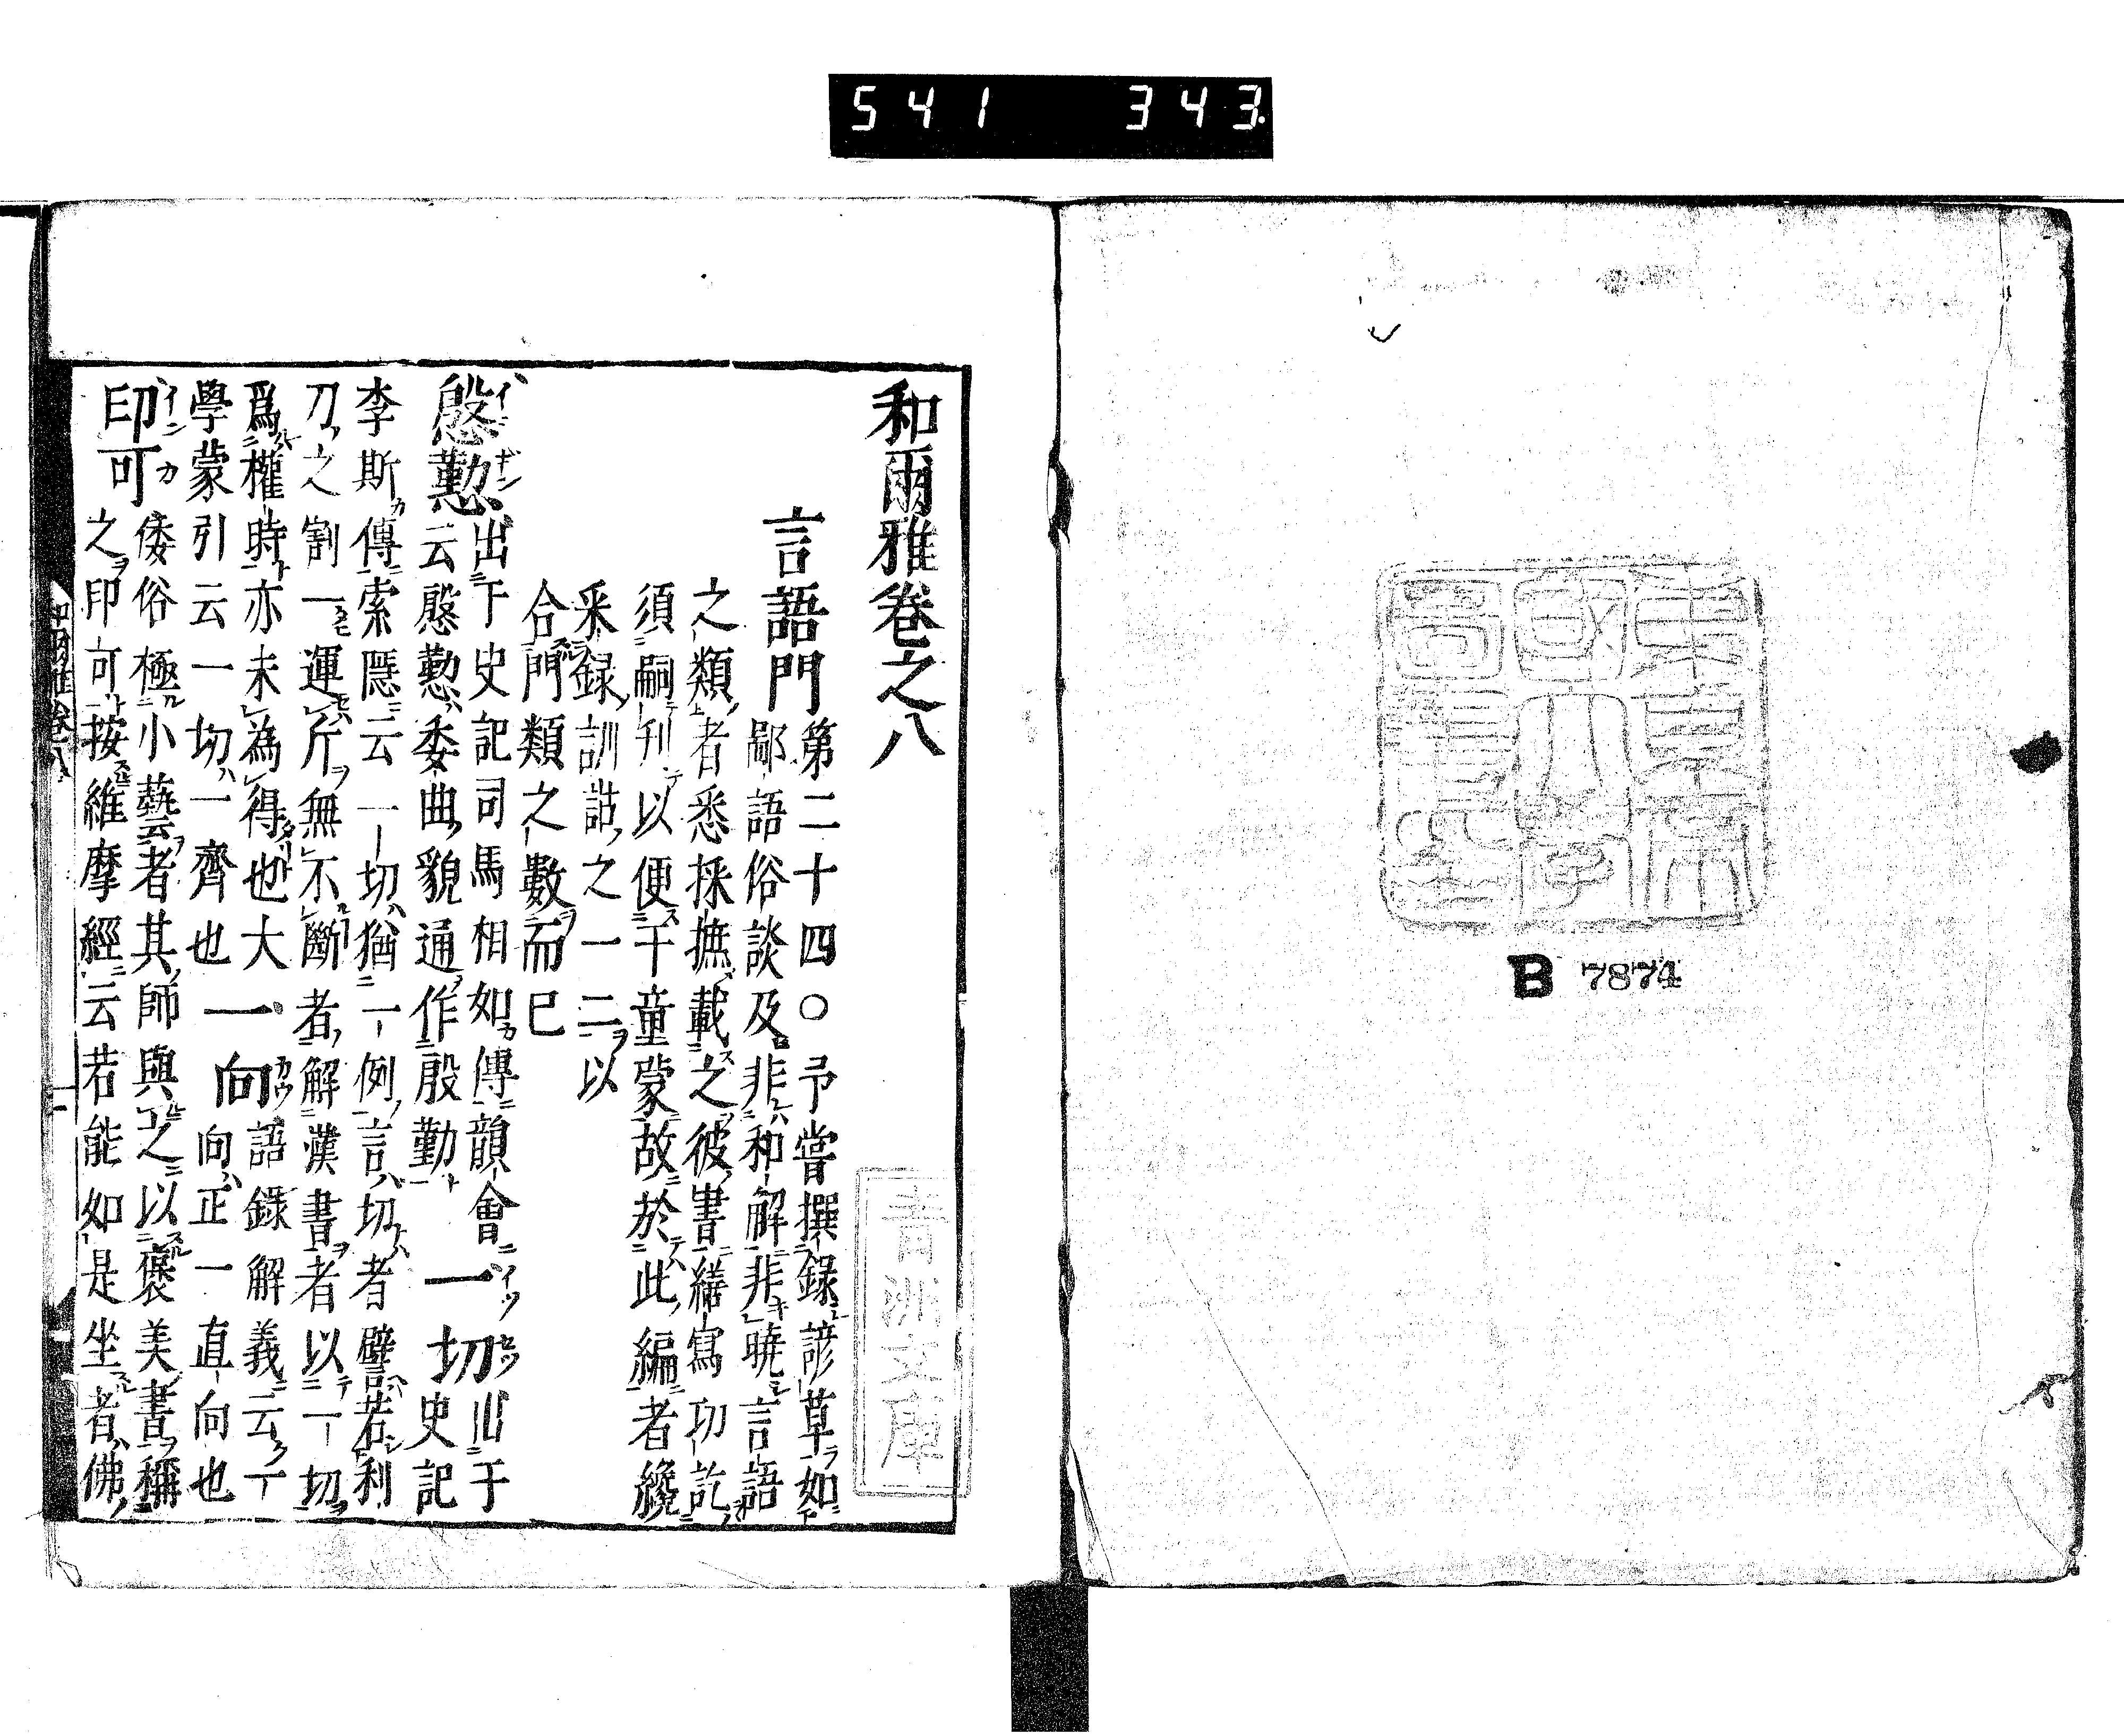 541 343.
東京帝國大學圖書印
B 7874
和爾雅卷之八
青洲文庫
言語門 第二十四〇予嘗撰錄諺草如
鄙語俗談及非和解非曉言語
之類者悉採摭載之彼書繕寫功訖
須嗣刊以便于童蒙故於此編者纔
釆録訓詁之一二以
合門類之數而已
慇懃 出于史記司馬相如傳韻會
云慇懃委曲貌通作殷勤
一切 出于史記
李斯傳索隱云一切猶一例言切者譬若利
刀之割一運斤無不斷者解漢書者以一切
爲權時亦未為得也大
學蒙引云一切一齊也
一向 語錄解義云一
向正一直向也
印可 倭俗極小藝者其師與之以褒美書稱
之印可按維摩經云若能如是坐者佛
和爾雅卷八
一